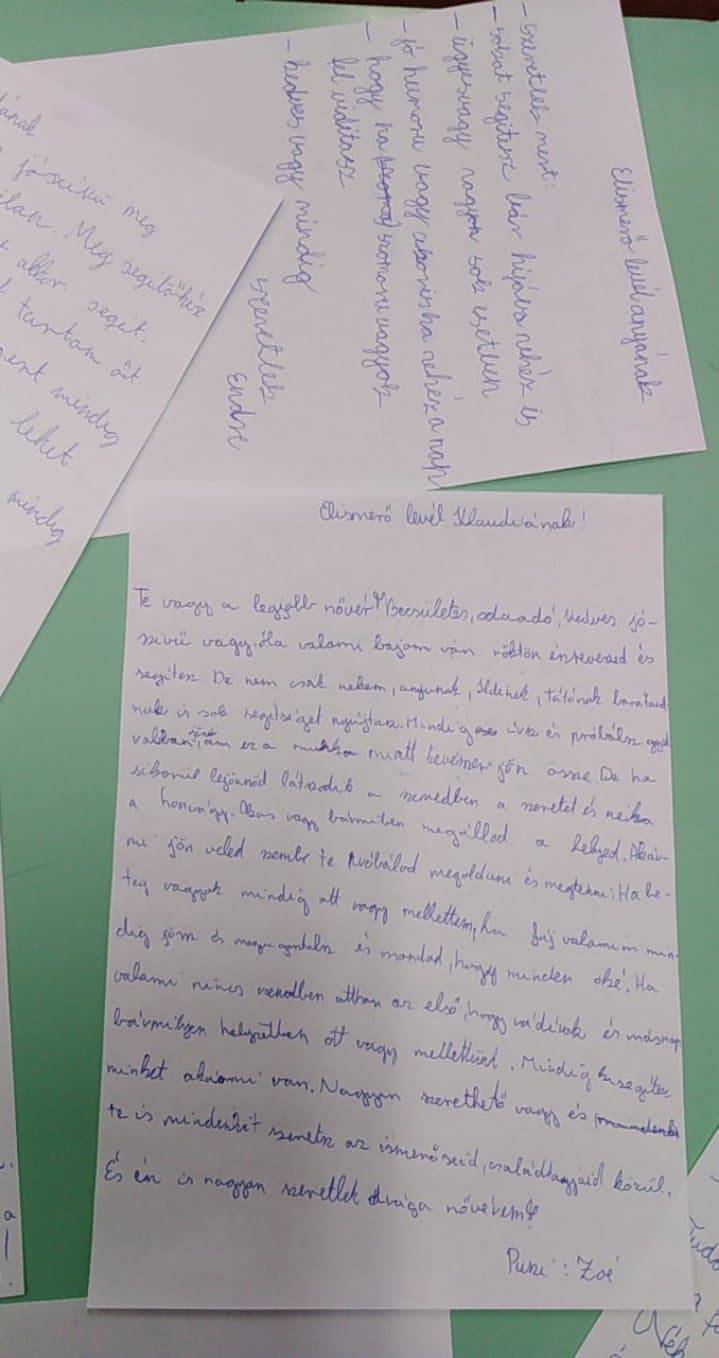 Elismerő levél anyának
- szeretlek mert:
- sokat segítesz bár kijössz nehéz is
- ügyes vagy nagyon sok esetben
- jó humorú vagy akkor is ha nehéz a nap
- hogy ha szomorú vagyok
fel vidítasz
- kedves vagy mindig
szeretlek
Endre
ának
jószívű meg
Meg segítőkész
akkor segít.
tartom őt
mert mindig
lehet
mindig
Elismerő levél Klaudiának!
Te vagy a legjobb nővér! Becsületes, odaadó, kedves jó-
szívű vagy. Ha valami bajom van rögtön észreveszed és
segítesz. De nem csak nekem, anyunak, Ildinek, tátónak barataid-
nak is sok segítséget nyújtasz. Mindig és próbálsz
ám ez a munka miatt jön össze. De ha
lejönnöd látszodik a szemedben a szeretet és
a honvágy. Okos vagy bármiben megállod a helyed. Akár-
mi jön veled szembe te próbálod megoldani és megtenni. Ha be-
teg vagyok mindig ott vagy mellettem, ha fáj valamim min-
dig jössz és és mondod, hogy minden oké. Ha
valami nincs rendben otthon az első, hogy és másnap
bármilyen helyzetben ott vagy mellettünk. Mindig kisegítesz
minket akármi van. Nagyon szerethető vagy és
te is mindenkit szeretsz az ismerőseid, családtagjaid közül.
És én is nagyon szeretlek drága nővérem!
Puszi: Zoé
a